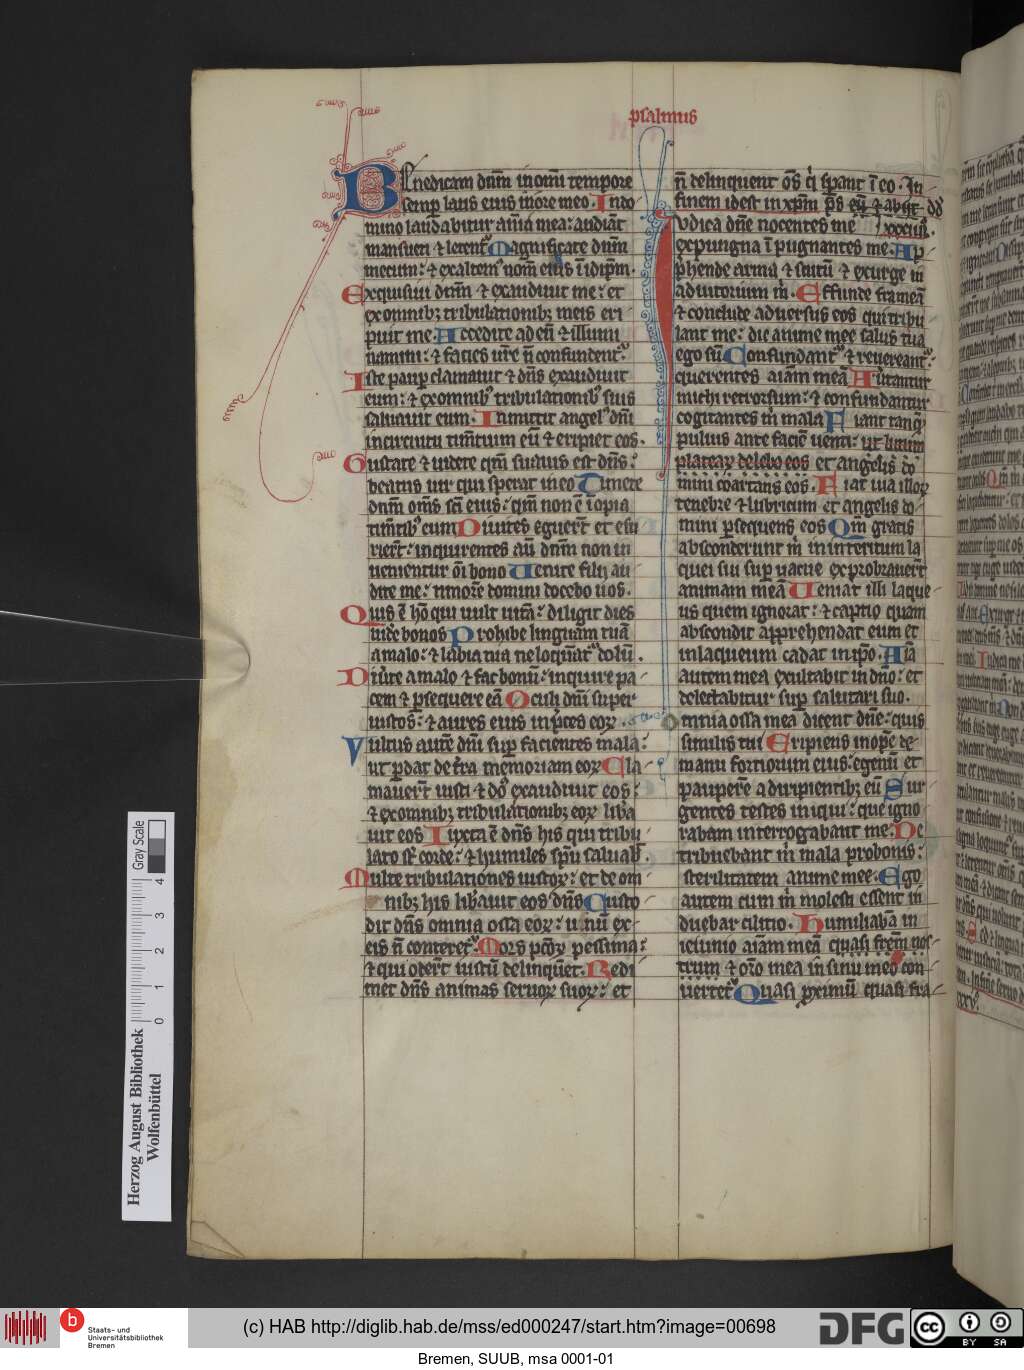 psalmus
Benedicam dnm̄ in om̄i tempore
semp̱ laus eius in ore meo. In do
mino laudabitur aīa mea: audiāt
mansueti & letent᷑. Magnificate dnm̄
mecum: & exaltem᷒ nom̄ eius ī idip̄m.
Exquisiui dnm̄ & exaudiuit me: et
ex omnibꝫ tribulationibꝫ meis eri
puit me. Accedite ad eū & illumi
namini: & facies ur̄e n̄ confundent᷑.
Iste paup̱ clamauit & dn̄s exaudiuit
eum: & ex omnibꝫ tribulationibꝫ suis
saluauit eum. Inmittit angel᷒ dn̄i
in circuitu tim̄tium eū & eripiet eos.
Gustate & uidete qm̄ suauis est dn̄s:
beatus uir qui sperat in eo. Timete
dnm̄ om̄s sc̄i eius: qm̄ non ē īopia
tim̄tibꝫ eum. Diuites eguer̄t et esu
rier̄t: inquirentes aū dnm̄ non mi
nuentur om̄i bono. Uenite filij au
dite me: timorē domini docebo uos.
Quis ē hō qui uult uitā: diligit dies
uidē bonos. Prohibe linguam tuā
a malo: & labia tua ne loquāt᷑ dolū.
Diu͛te a malo & fac bonū: inquire pa
cem & p̱sequere eā. Oculi dn̄i super
iustos: & aures eius in p̄ces eoꝝ.
Uultus autē dn̄i sup̱ facientes mala:
ut p̱dat de t͛ra memoriam eoꝝ. Cla
mauer̄t iusti & dn̄s exaudiuit eos:
& ex omnibꝫ tribulationibꝫ eoꝝ lib͛a
uit eos. Iuxta ē dn̄s his qui tribu
lato st̄ corde: & humiles sp̄u saluab̄.
Multe tribulationes iustoꝝ: et de om
nibꝫ his lib͛auit eos dn̄s. Custo
dit dn̄s omnia ossa eoꝝ: unū ex
eis n̄ conteret᷑. Mors pc̄oꝝ pessima:
& qui oder̄t iustū delinquēt. Redi
met dn̄s animas seruoꝝ suoꝝ: et
n̄ delinquent om̄s q̇ sp̱ant ī eo. In
finem id est in xp̄m ps̄ eū & abiit dd̄
Iudica dn̄e nocentes me xxxiiii.
expungna īpungnantes me. Ap
p̄hende arma & scutū & exurge in
adiutorium m̄. Effunde frameā
& conclude aduersus eos qui tribu
lant me: dic anime mee salus tua
ego sū. Confundant᷑ & reuereant᷑:
querentes aīam meā. Au͛tantur
michi retrorsum: & confundantur
cogitantes m̄ mala. Fiant tanq̄
puluis ante faciē uenti: ut lutum
plateaꝝ delebo eos et angel᷒s do
mini coartans eos. Fiat uia illoꝝ
tenebre & lubricum et angel᷒s do
mini p̱sequens eos. Qm̄ gratis
absconderunt m̄ in interitum la
quei sui sup̱ uacue exprobrauer̄t
animam meā. Ueniat illi laque
us quem ignorat: & captio quam
abscondit apprehendat eum et
in laqueum cadat in ip̄o. Aīa
autem mea exultabit in dn̄o: et
delectabitur sup̱ salutari suo.
Omnia ossa mea dicent dn̄e: quis
similis tui. Eripiens inopē de
manu fortiorum eius: egenū et
pauperē a diripientibꝫ eū. Sur
gentes testes iniqui: que igno
rabam interrogabant me. Re
tribuebant m̄ mala pro bonis:
sterilitatem anime mee. Ego
autem cum m̄ molesti essent in
duebar cilitio. Humiliabā in
ieiunio aīam meā quasi frem̄ nos
trum & or̄o mea in sinu meo con
uertet᷑. Quasi ꝓximū quasi fra
Herzog August Bibliothek
Wolfenbüttel
Gray Scale
0 1 2 3 4
b
Staats- und
Universitätsbibliothek
Bremen
(c) HAB http://diglib.hab.de/mss/ed000247/start.htm?image=00698
DFG
cc
BY SA
Bremen, SUUB, msa 0001-01